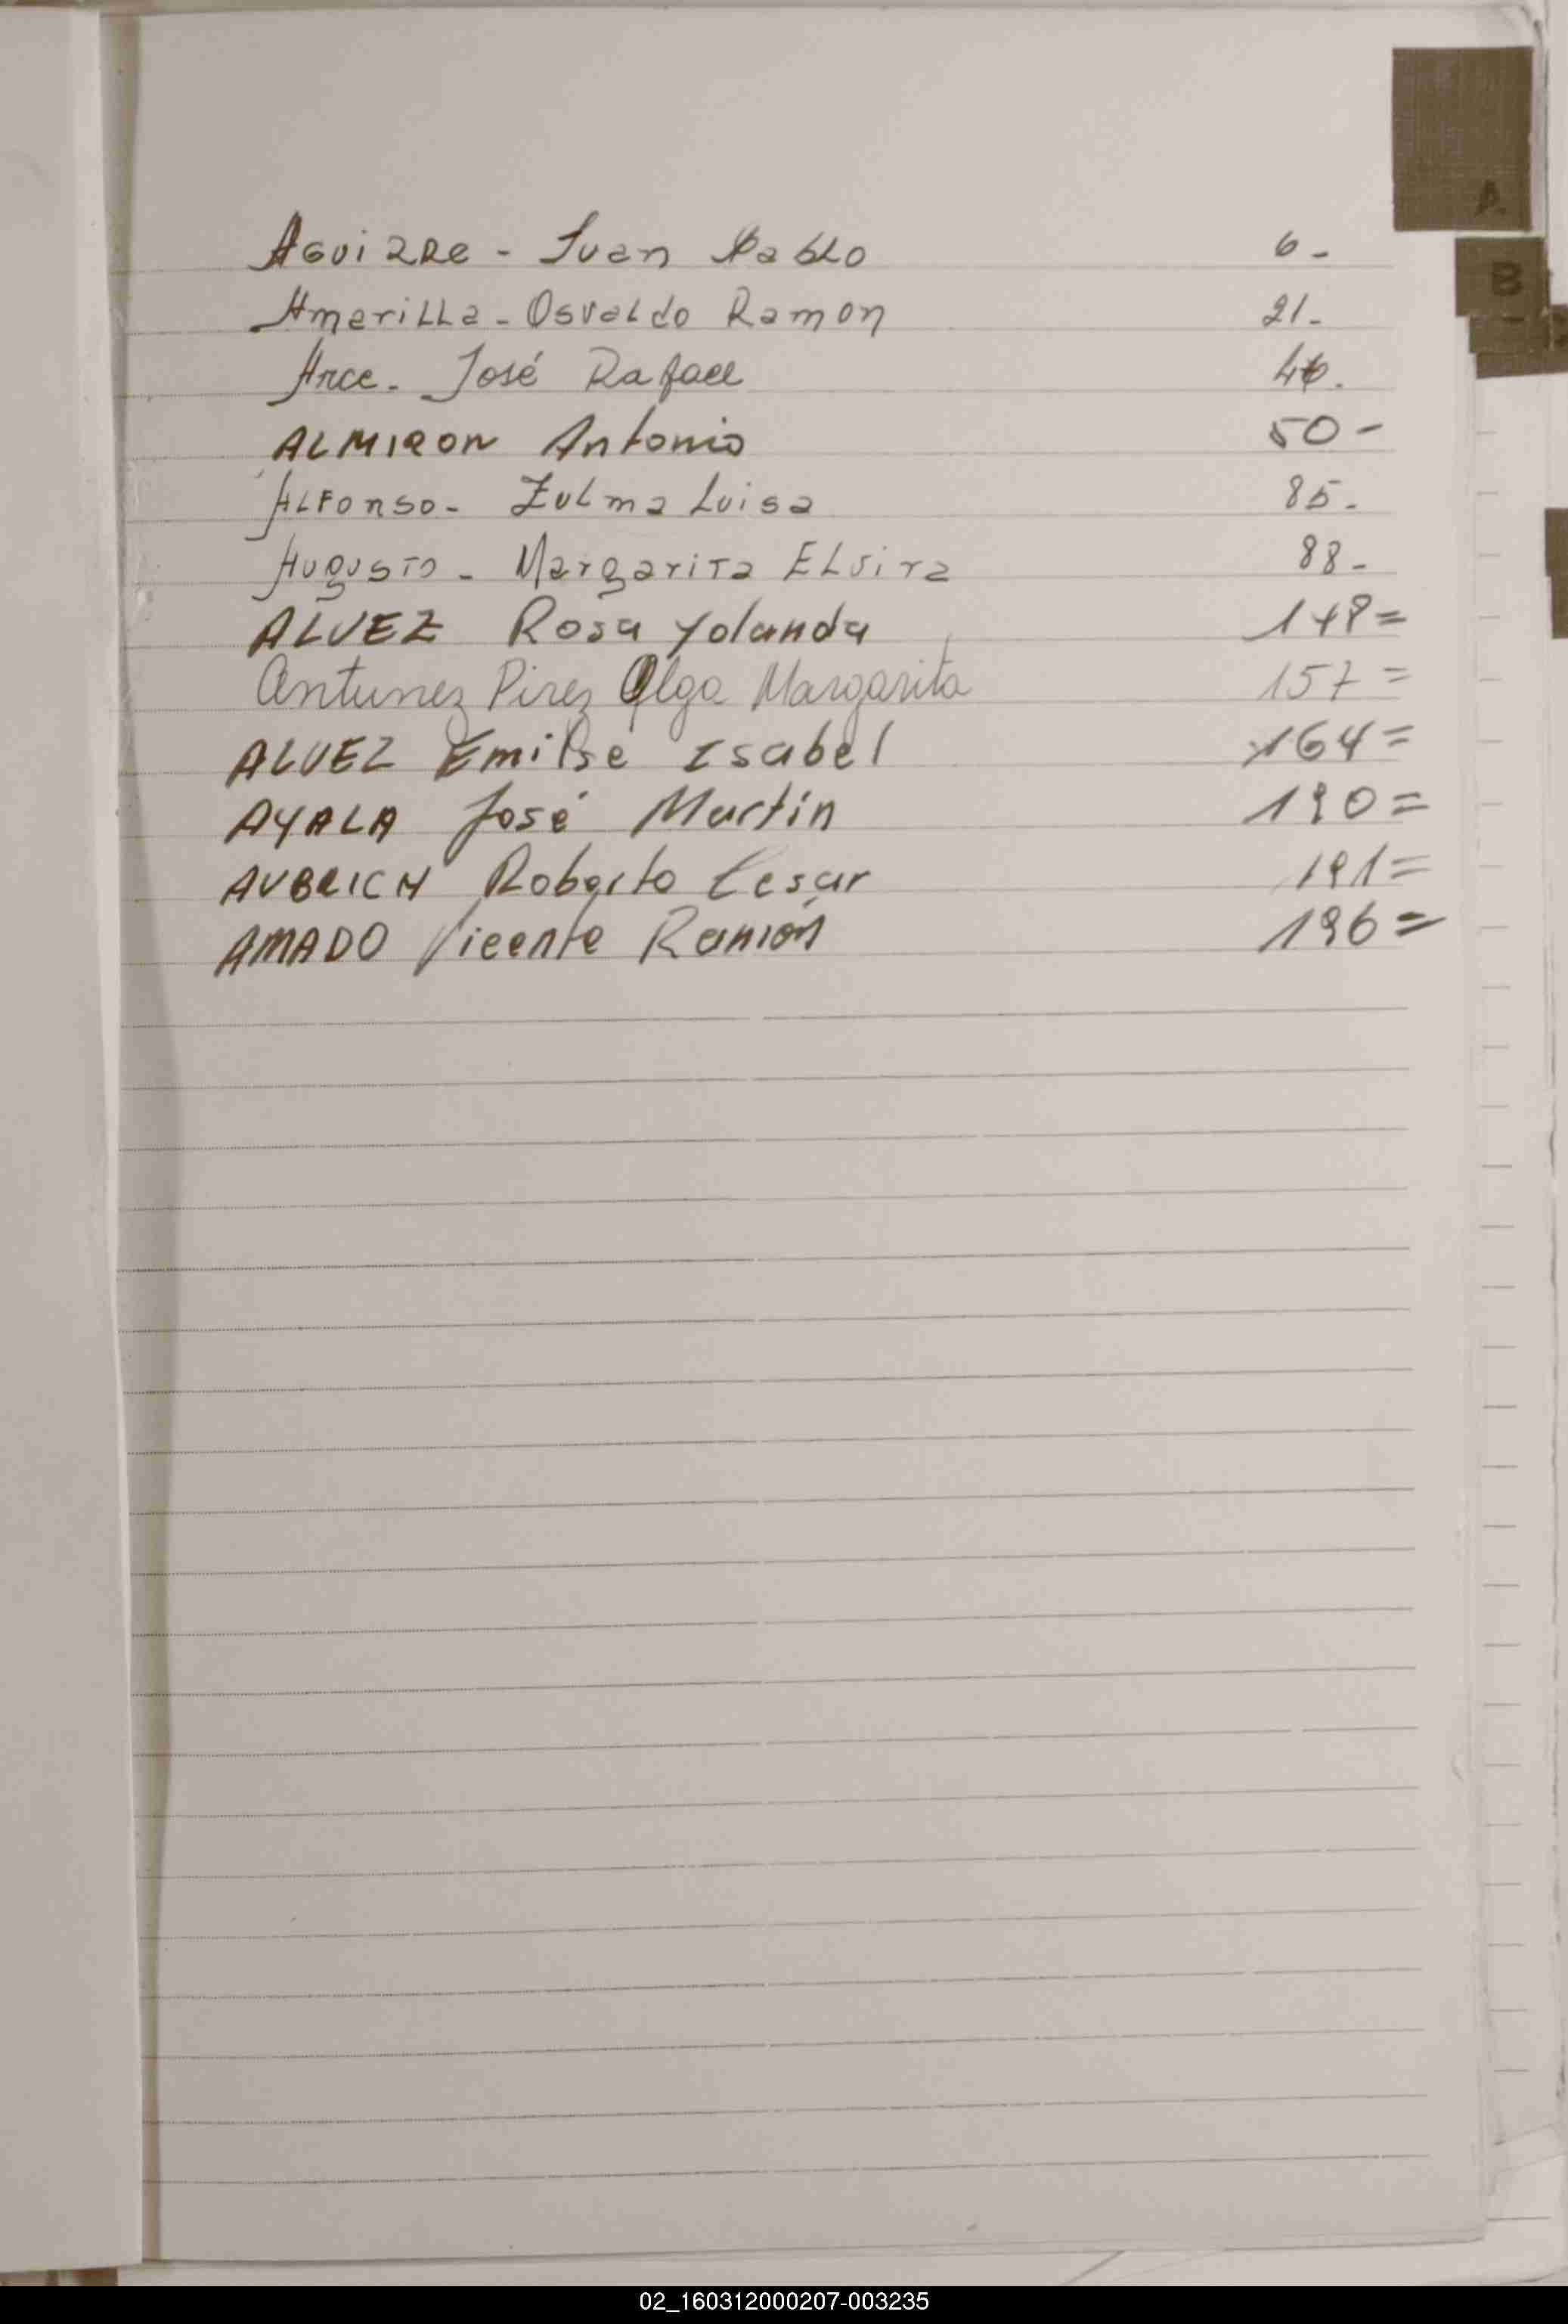 A
B
Aguirre - Juan Pablo 6-
Amarilla - Osvaldo Ramon 21-
Arce - José Rafael
ALMIRON Antonio 50-
Alfonso - Zulma Luisa 85-
Augusto - Margarita Elvira 88-
ALVEZ Rosa Yolanda
Antunez Pirez Olga Margarita 157=
ALVEZ Emilse Isabel 164=
AYALA José Martin 190=
AUBRICH Roberto Cesar 191=
AMADO Vicente Ramón 196=
02_160312000207-003235